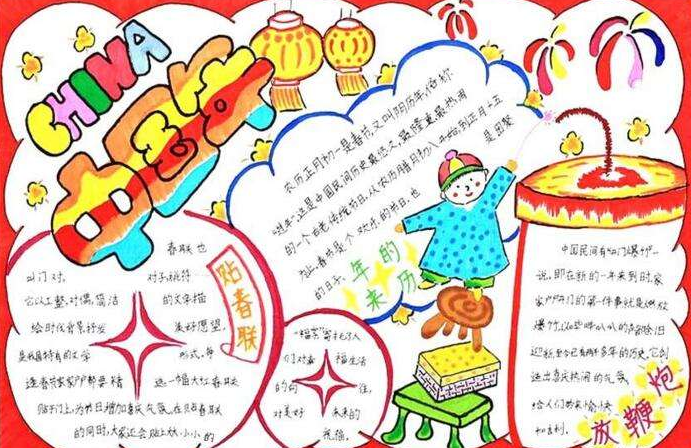 CHINA
中国年
农历正月初一是春节,又叫阴历年,俗称
这是中国民间历史最悠久、最隆重、最热闹
的一个古老传统节日。从农历腊月初八开始,到正月十五
春节是个欢乐的节日,也
是团聚
的日子。
年的
来历
春联也
叫门对,
对子,桃符
它以工整、对偶、简洁
的文字描
绘时代背景,抒发
美好愿望,
是我国特有的文学
形式。每
逢春节家家户户都要精
选一幅大红春联
贴于门上,为节日增加喜庆气氛。在贴春联
的同时,大家还会贴上大小小的
贴春联
"福"字寄托了人
们对幸
福生活
的向
往,
对美好
未来的
祝愿。
中国民间有"开门爆竹"一
说。即在新的一年来到时,家
家户户开门的第一件事就是燃放
爆竹,以
的声除旧
迎新。
多年的历史,它创
造出喜庆热闹的气氛,
给人们带来愉快
和吉利。
放鞭炮